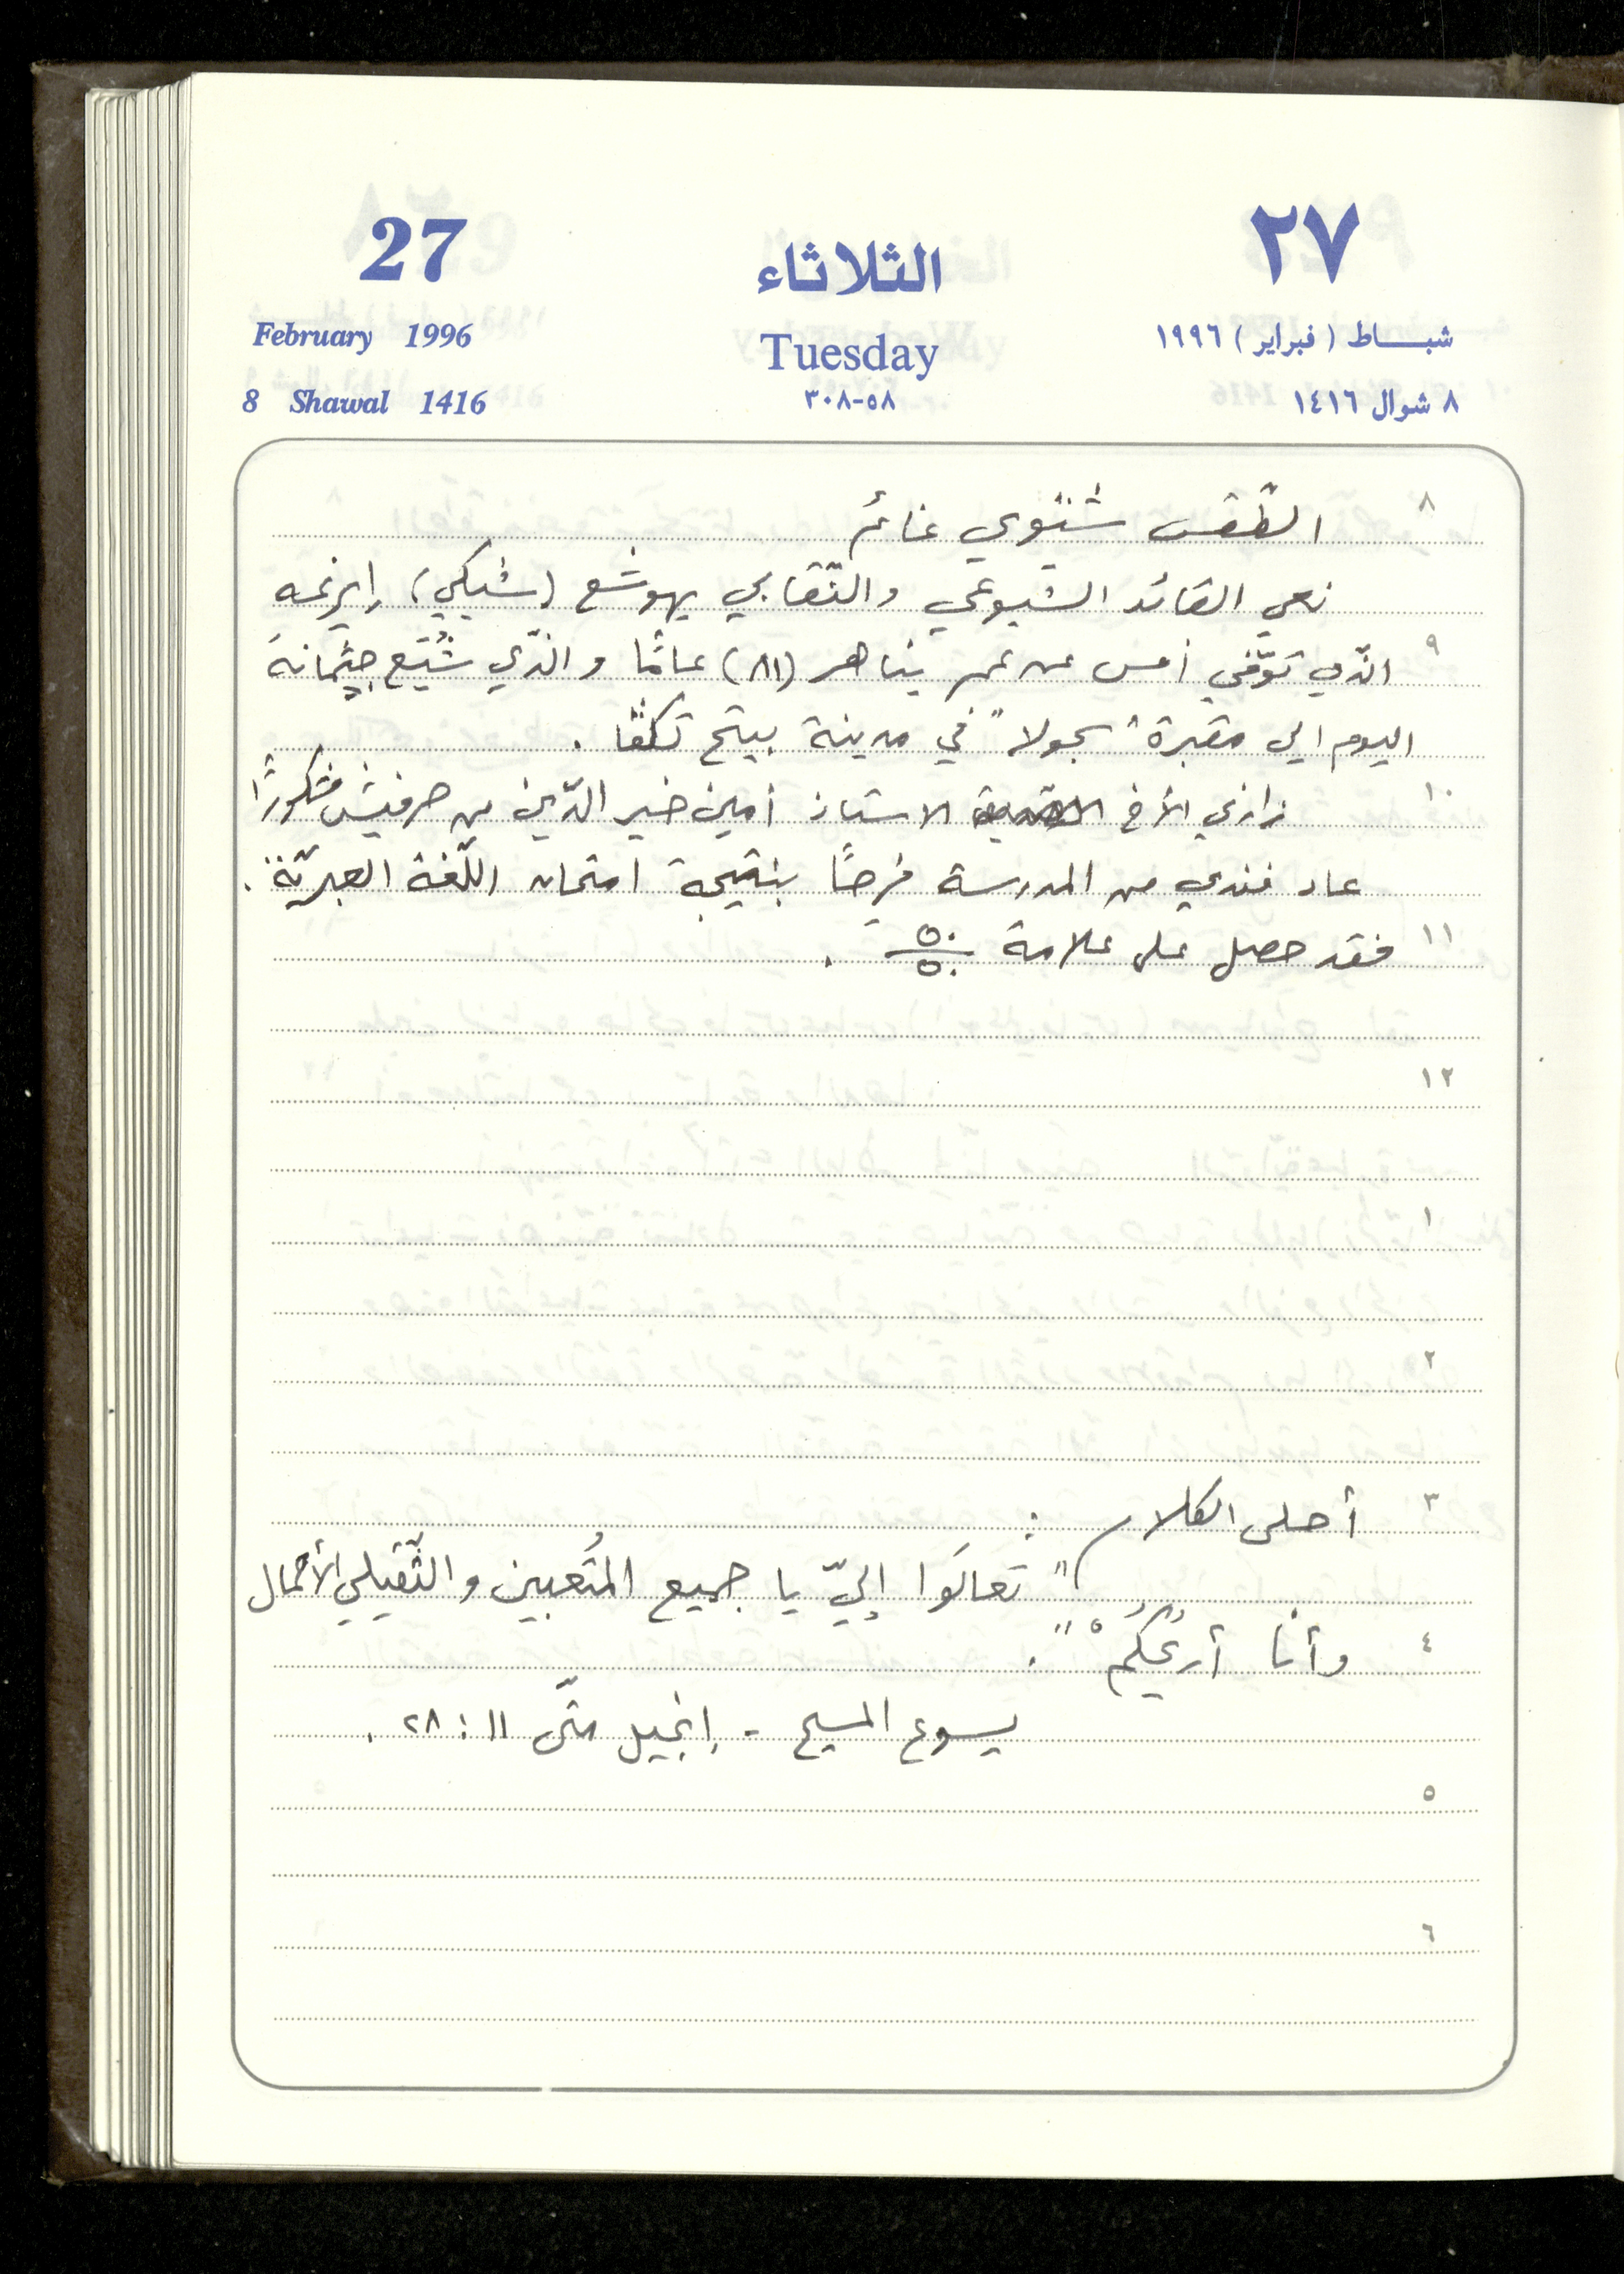 27
الثلاثاء
٢٧
February 1996
Tuesday
شبــــاط (فبراير) ١٩٩٦
8 Shawal 1416
٥٨-٣٠٨
٨ شوال ١٤١٦
٨
الطّقس شتوي غائم
نعي القائد الشيوعي والنّقابي يهوشع (شيكي) إيرغه
٩
الذّي توّفي أمس عن عمر يناهر (٨١) عامًا والذّي شُيّع جثمانه
اليوم الى مقبرة "سجولا" في مدينة بيتح تكڤا .
١٠
زارني الأخ الاستاذ أمين خير الدّين من حرفيش مشكورًا
عاد فندي من المدرسة فرحًا بنتيجة امتحان اللّغة العبريّة.
١١
فقد حصل على علامة ٥٠/٥٠ .
١٢
١
٢
٣
أحلى الكلام :
"تعالَوا إليّ يا جميع المُتعبين والثّقيلي الأحمال
٤
وأنا أريحُكُمْ" .
يسوع المسيح - إنجيل متّى ١١ : ٢٨ .
٥
٦